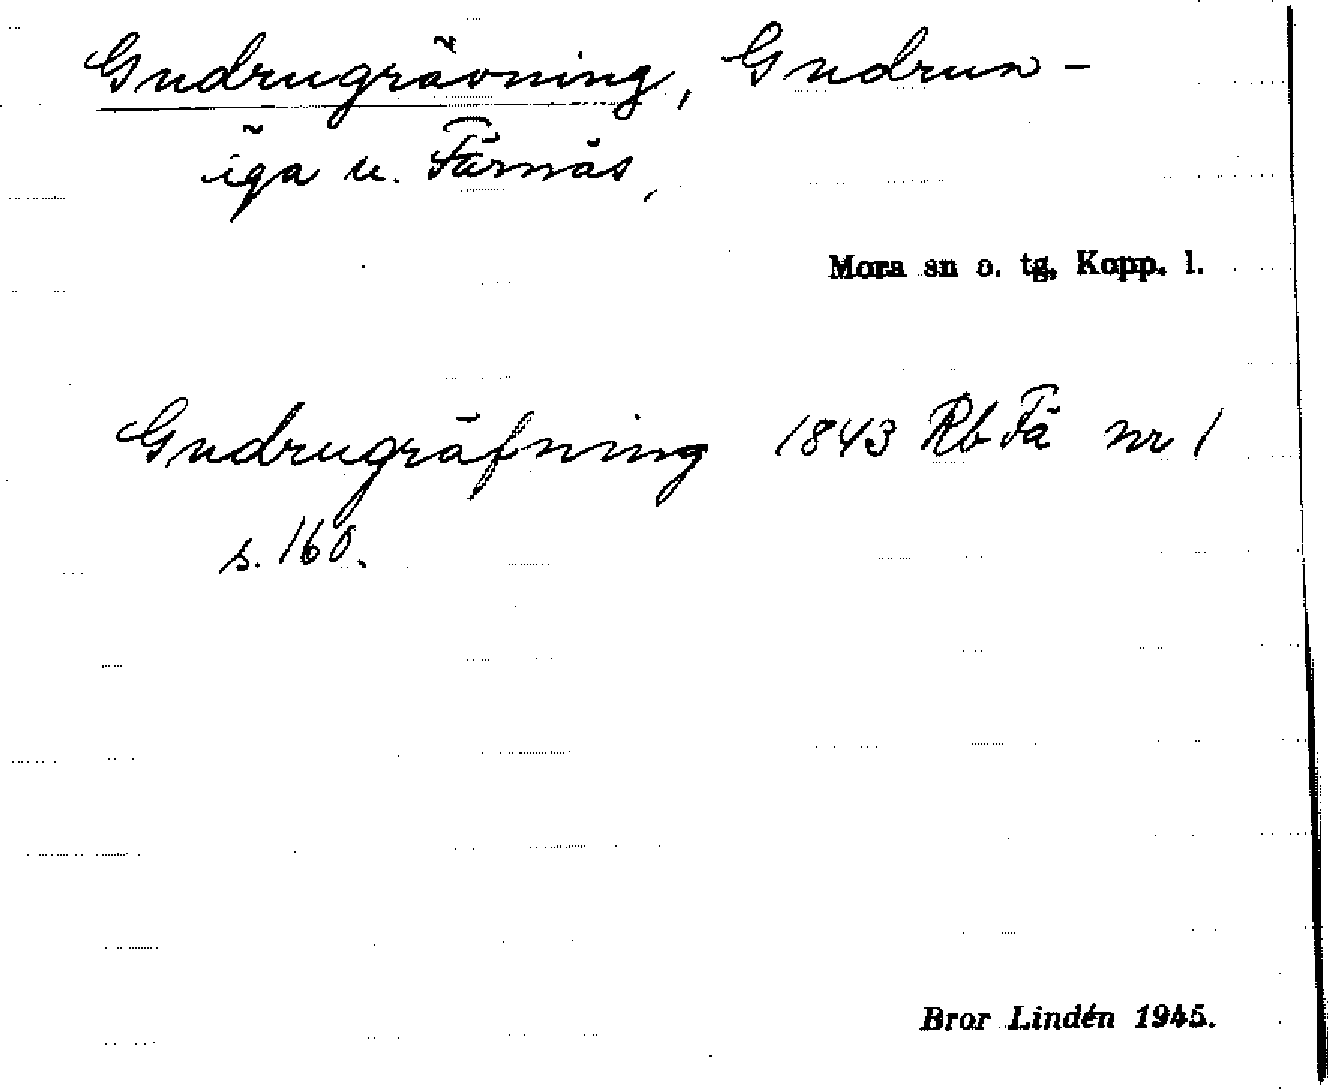 Gudrugrävning, Gudrun-
äga u. Färnäs,
Mora sn o. tg, Kopp. l.
Gudrugräfning 1843 Rb Fä nr 1
s. 160.
Bror Lindén 1945.